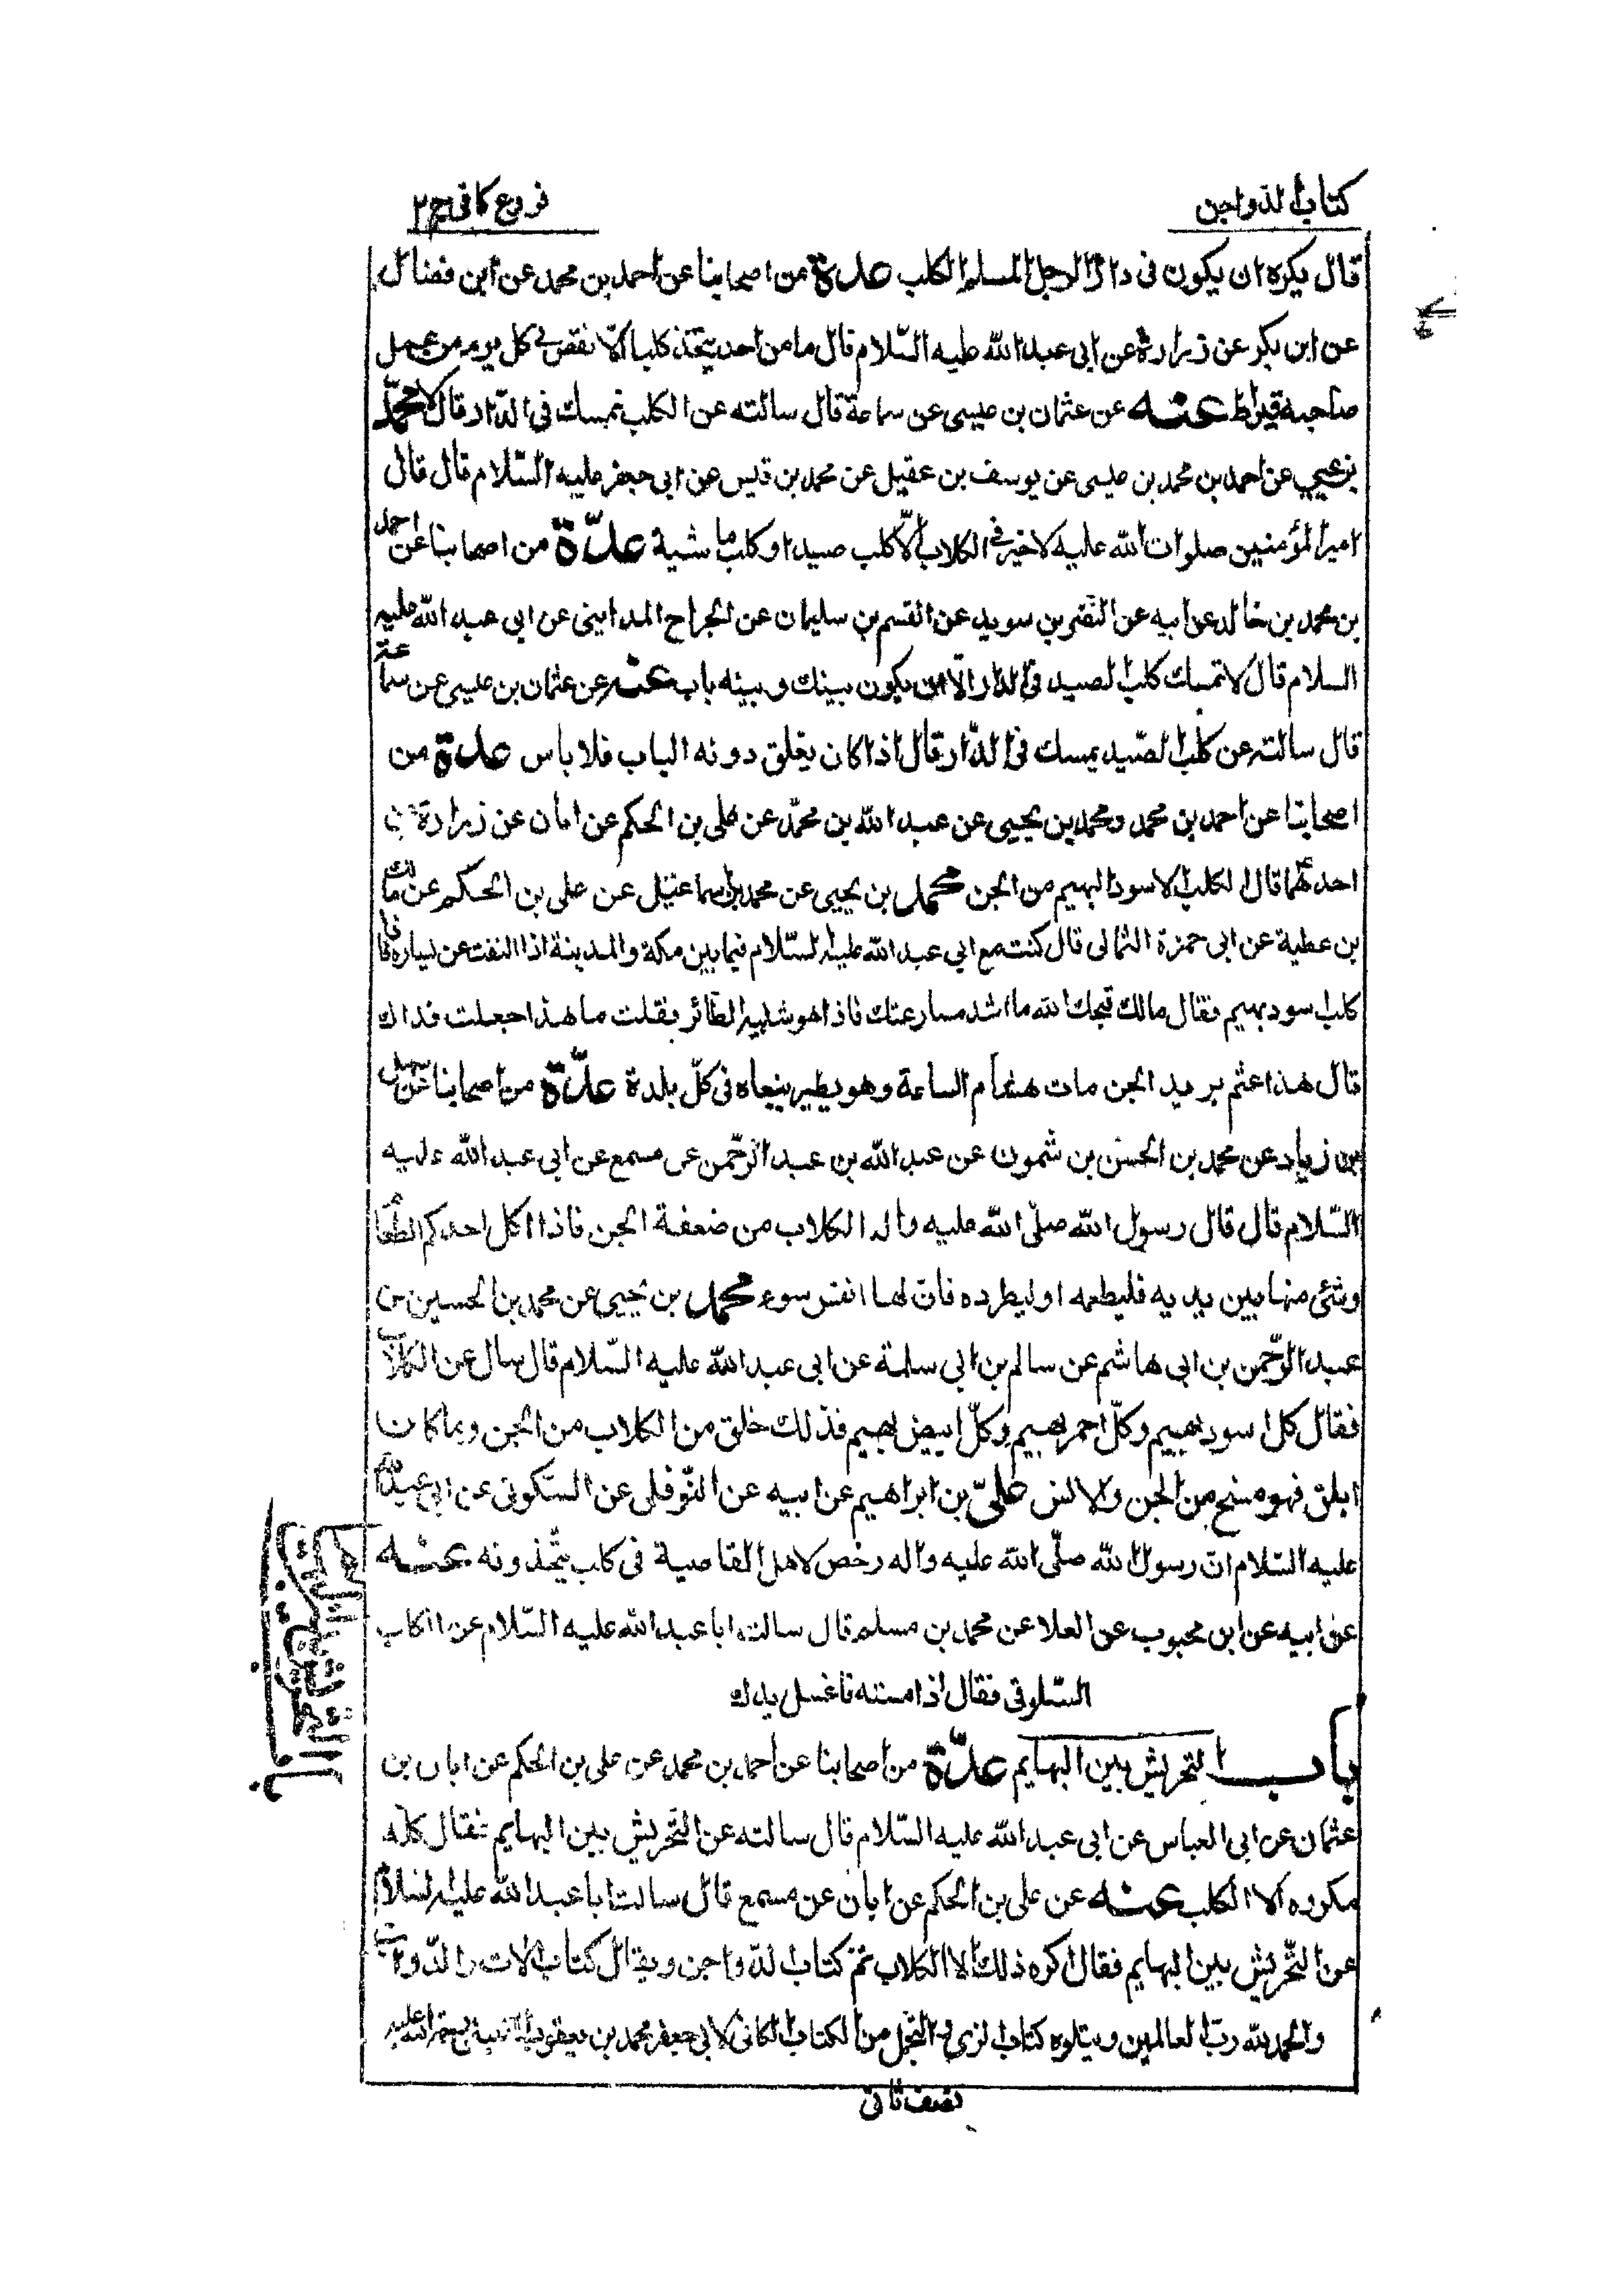 كتاب الدواجن
فروع كافي ج٢
قال يكره ان يكون في دار الرجل المسلم الكلب عدة من اصحابنا عن احمد بن محمد عن ابن فضال
عن ابن بكير عن زرارة عن ابي عبد الله عليه السّلام قال ما من احد يتخذ كلبا الّا نقص في كل يوم من عمل
صاحبه قيراط عنه عن عثمان بن عيسى عن سماعة قال سالته عن الكلب نمسك في الدّار قال لا محمّد
بن يحيى عن احمد بن محمد بن عيسى عن يوسف بن عقيل عن محمد بن قيس عن ابي جعفر عليه السّلام قال قال
امير المؤمنين صلوات الله عليه لا خير في الكلاب الّا كلب صيد او كلب ما شية عدّة من اصحابنا عن احمد
بن محمد بن خالد عن ابيه عن النّضر بن سويد عن القسم بن سليمان عن الجراح المدايني عن ابي عبد الله عليه
السلام قال لا تمسك كلب الصيد في الدار الّا ان يكون بينك وبينه باب عنه عن عثمان بن عيسى عن سماعة
قال سالته عن كلب الصّيد يمسك في الدّار قال اذا كان يغلق دونه الباب فلا باس عدة من
اصحابنا عن احمد بن محمد ومحمد بن يحيى عن عبد الله بن محمّد عن علي بن الحكم عن ابان عن زرارة عن
احدهما قال الكلب الاسود البهيم من الجن محمد بن يحيى عن محمد بن اسماعيل عن علي بن الحكم عن مالك
بن عطية عن ابي حمزة الثمالي قال كنت مع ابي عبد الله عليه السّلام فيما بين مكة والمدينة اذا التفت عن يساره فاذا
كلب اسود بهيم فقال مالك قبحك الله ما اشد مسارعتك فاذا هو شبيه الطّائر فقلت ما هذا جعلت فداك
قال هذا عثم بريد الجن مات هشام الساعة وهو يطير ينعاه في كلّ بلدة عدّة من اصحابنا عن سهل
بن زياد عن محمد بن الحسن بن شمون عن عبد الله بن عبد الرّحمن عن مسمع عن ابي عبد الله عليه
السّلام قال قال رسول الله صلّى الله عليه واله الكلاب من ضعفة الجن فاذا اكل احدكم الطّعام
وشئ منها بين يديه فليطعمه او ليطرده فان لها انفس سوء محمد بن يحيى عن محمد بن الحسين عن
عبد الرّحمن بن ابي هاشم عن سالم بن ابي سلمة عن ابي عبد الله عليه السّلام قال سال عن الكلاب
فقال كل اسود بهيم وكلّ احمر بهيم وكلّ ابيض بهيم فذلك خلق من الكلاب من الجن وما كان
ابلق فهو مسخ من الجن والانس عليّ بن ابراهيم عن ابيه عن النّوفلي عن السّكوني عن ابي عبد الله
عليه السّلام ان رسول الله صلّى الله عليه واله رخص لاهل القاصية في كلب يتّخذونه عنه
عن ابيه عن ابن محبوب عن العلا عن محمد بن مسلم قال سالت ابا عبد الله عليه السّلام عن الكلب
السّلوقي فقال اذا مسته فاغسل يدك
باب التحريش بين البهايم عدّة من اصحابنا عن احمد بن محمد عن علي بن الحكم عن ابان بن
عثمان عن ابي العباس عن ابي عبد الله عليه السّلام قال سالته عن التّحريش بين البهايم فقال كله
مكروه الا الكلب عنه عن علي بن الحكم عن ابان عن مسمع قال سالت ابا عبد الله عليه السّلام
عن التّحريش بين البهايم فقال اكره ذلك الا الكلاب تمّ كتاب الدّواجن ويقال كتاب الات الدّواب
والحمد لله رب العالمين ويتلوه كتاب الزي والتجمل من الكتاب الكافي لابي جعفر محمد بن يعقوب رحمة الله عليه
باب التحريش بين
نصف ثاني